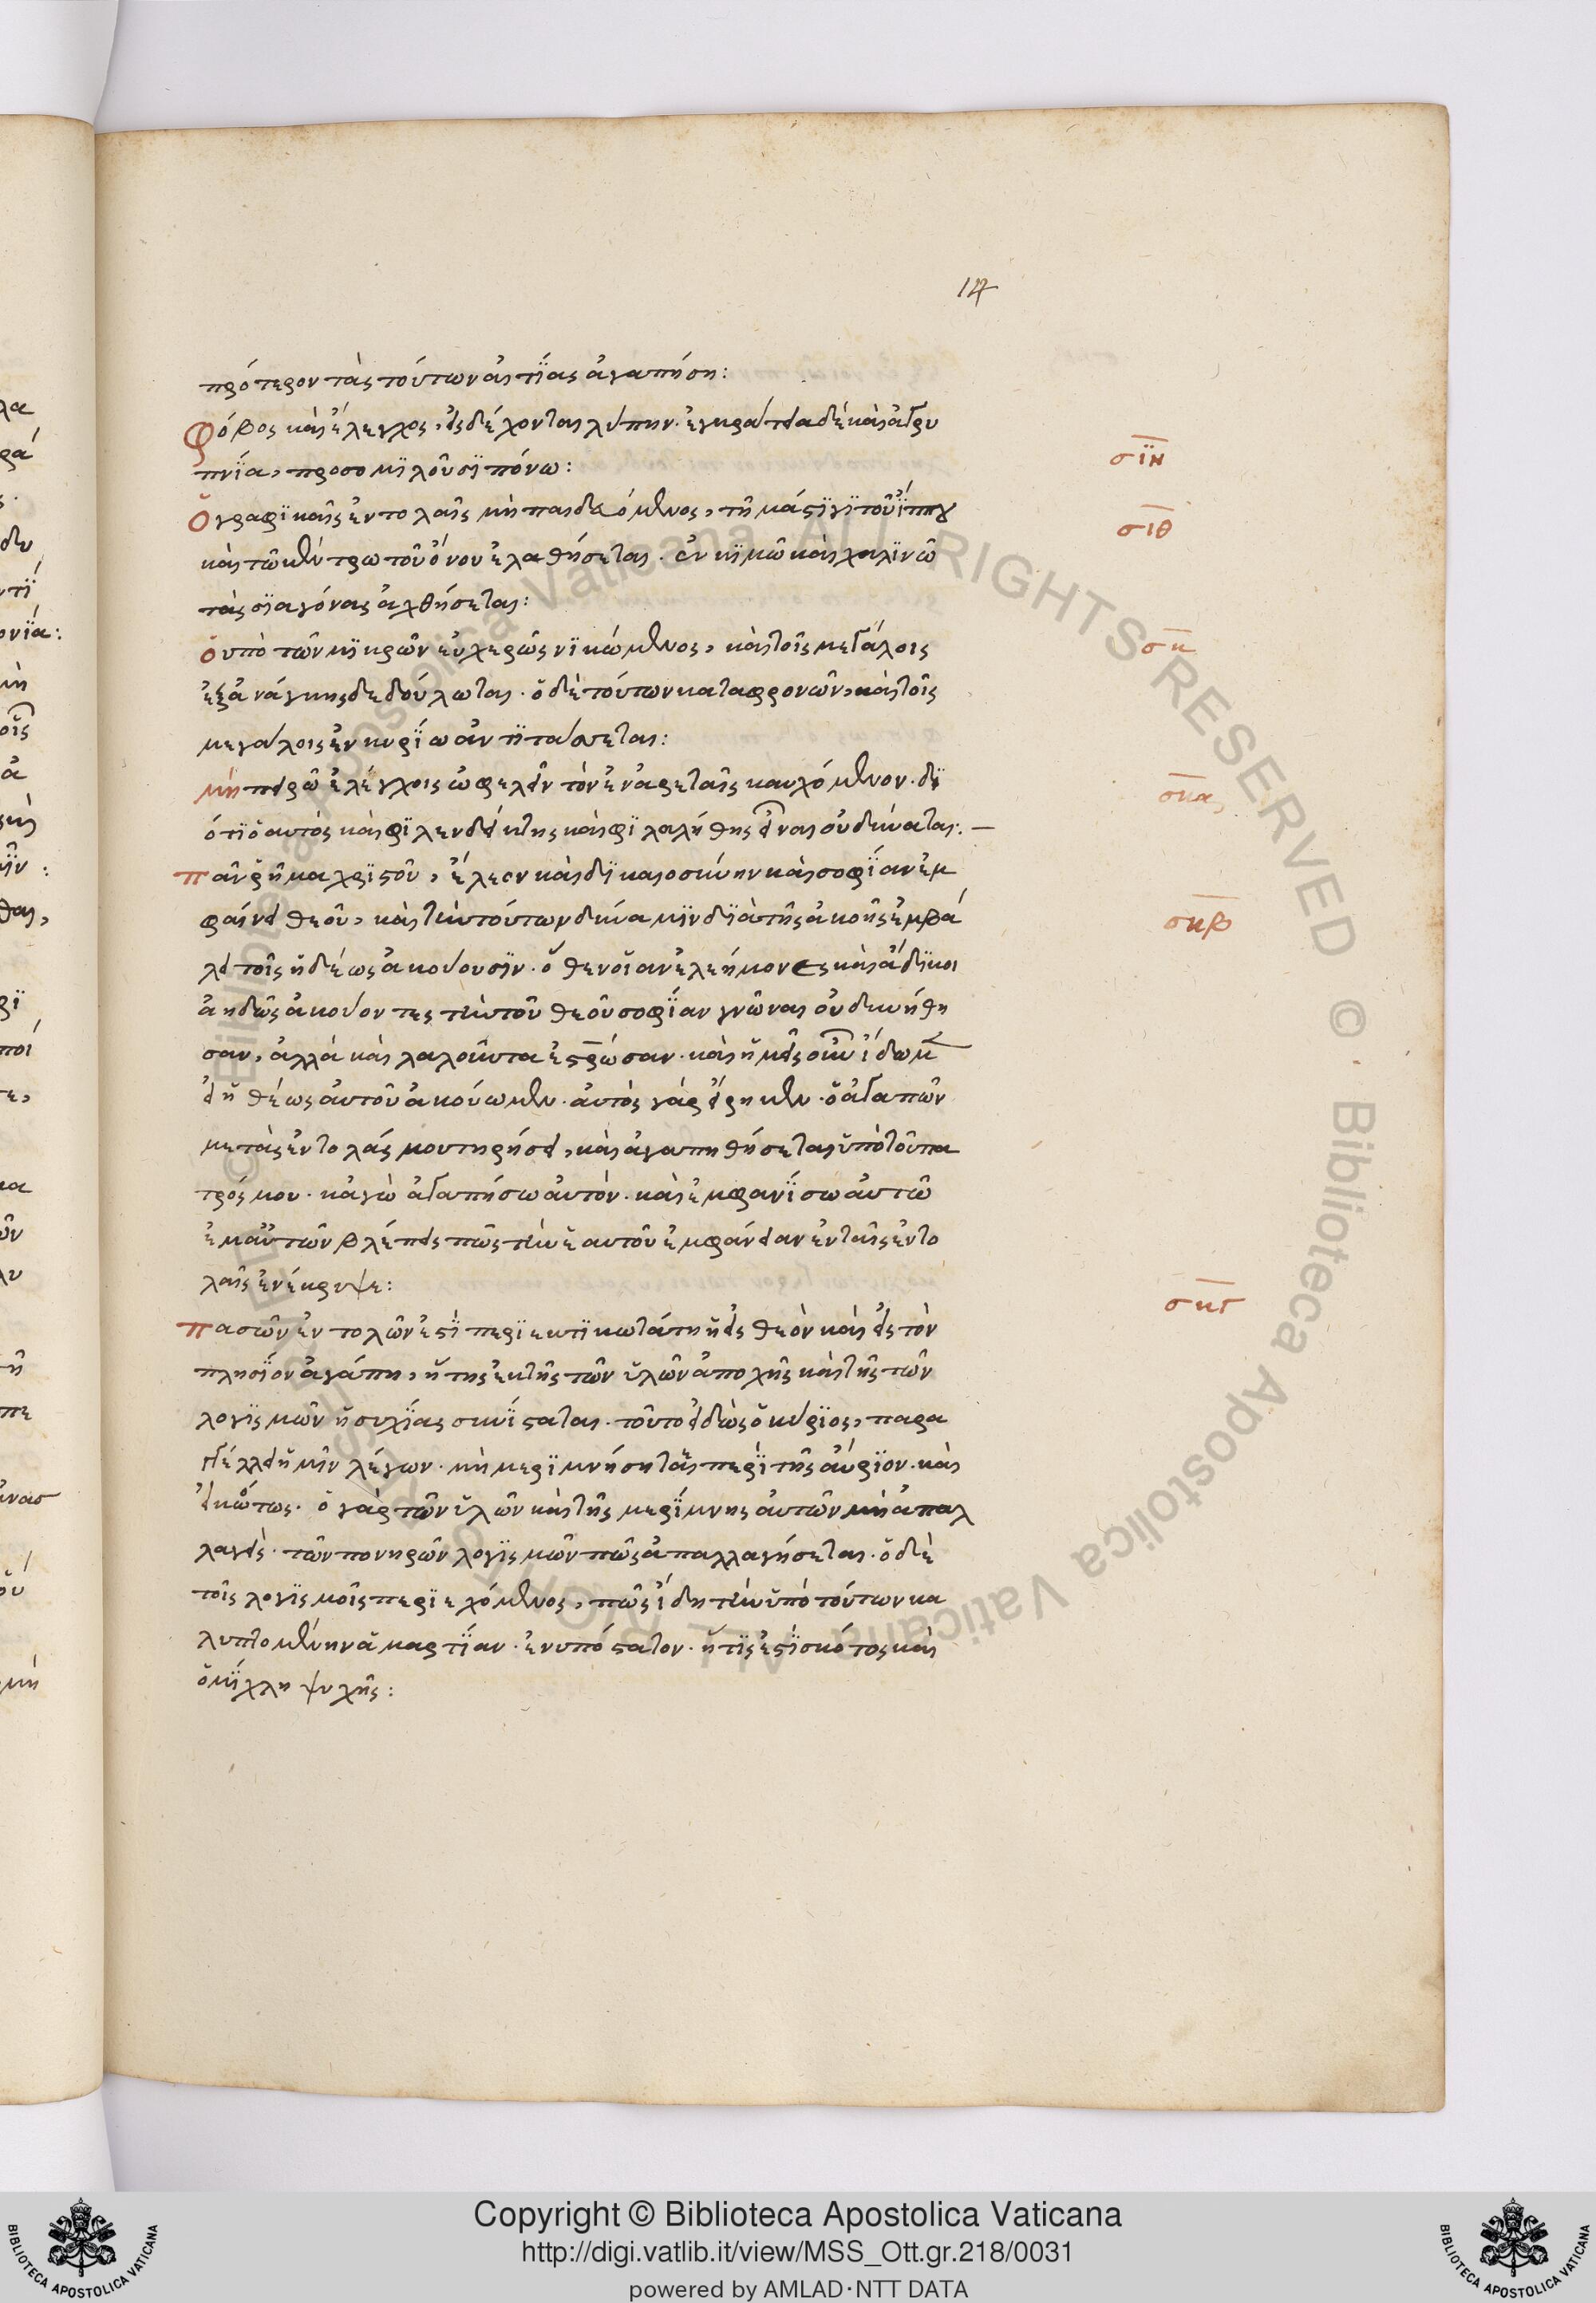 14
πρότερον τὰς τούτων αἰτΐας ἀγαπήση:
Φόβος καὶ ἔλεγχος, εἰσδέχονται λύπην. ἐγκράτεια δὲ καὶ ἀγρυ
πνΐα, προσομϊλοῦσϊ πόνω:
σϊη
Ὁ γραφϊκαῖς ἐντολαῖς μὴ παιδευόμενος, τῆ μάστϊγϊ τοῦ ἵππου
σιθ
καὶ τῶ κέντρω τοῦ ὄνου ἐλαθήσεται. ἐν κϊμῶ καὶ χαλϊνῶ
τὰς σϊαγόνας ἀχθήσεται:
ὁ ὑπὸ τῶν μϊκρῶν εὐχερῶς νϊκώμενος, καὶ τοῖς μεγάλοις
σκ
ἐξανάγκης δεδούλωται. ὁ δὲ τούτων καταφρονῶν, καὶ τοῖς
μεγάλοις ἐν κυρΐω ἀντϊτάσσεται:
μὴ πειρῶ ἐλέγχοις ὠφελεῖν τὸν ἐν ἀρεταῖς καυχόμενον. δϊ
σκα
ότϊ ὁ αυτὸς καὶ φϊλενδείκτης καὶ φϊλαλήθης εἶναι οὐ δύναται:—
πᾶν ῥῆμα χρϊστοῦ, ἔλεον καὶ δϊκαιοσύνην καὶ σοφΐαν ἐμ
φαίνει θεοῦ, καὶ τὴν τούτων δύναμϊν δϊὰ τῆς ἀκοῆς ἐμβά
σκβ
λει τοῖς ἡδέως ἀκούουσϊν. ὅθεν οἱ ἀνελεήμονες καὶ ἄδϊκοι
ἀηδῶς ἀκούοντες τὴν τοῦ θεοῦ σοφΐαν γνῶναι οὐδυνήθη
σαν, ἀλλὰ καὶ λαλοῦντα ἐσταύρωσαν. καὶ ἡμεῖς οὖν ἴδωμεν
εἰ ἡθέως αὐτοῦ ἀκούωμεν. αὐτὸς γὰρ εἴρηκεν. ὁ ἀγαπῶν
με τὰς ἐντολάς μου τηρήσει, καὶ ἀγαπηθήσεται ὑπὸ τοῦ πα
τρός μου. κἀγὼ ἀγαπήσω αὐτόν. καὶ ἐμφανΐσω αὐτῶ
ἐμαὐτῶν βλέπεις πῶς τὴν ἑαυτοῦ ἐμφάνειαν ἐν ταῖς ἐντο
λαῖς ἐνέκρυψε:
σκγ
πασῶν ἐντολῶν ἐστϊ περϊεκτϊκωτάτη ἡ εἰς θεὸν καὶ εἰς τὸν
πλησΐον ἀγάπη, ἥτης ἐκ τῆς τῶν ὑλῶν ἀποχῆς καὶ τῆς τῶν
λογϊσμῶν ἡσυχΐας συνΐσταται. τοῦτο εἰδὼς ὁ κύρϊος, παρα
γγέλλει ἡμῖν λέγων. μὴ μερϊμνήσηται περὶ τῆς αὔρϊον. καὶ
εἰκότως. ὁ γὰρ τῶν ὑλῶν καὶ τῆς μερΐμνης αὐτῶν μὴ ἀπαλ
λαγεὶς. τῶν πονηρῶν λογϊσμῶν πῶς ἀπαλλαγήσεται. ὁ δὲ
τοῖς λογϊσμοῖς περϊεχόμενος, πῶς ἴδη τὴν ὑπὸ τούτων κα
λυπτομένην ἁμαρτΐαν. ἐνυπόστατον. ἥτϊς ἐστΐ σκότος καὶ
ὁμΐχλη ψυχῆς:
Copyright © Biblioteca Apostolica Vaticana
http://digi.vatlib.it/view/MSS_Ott.gr.218/0031
powered by AMLAD·NTT DATA